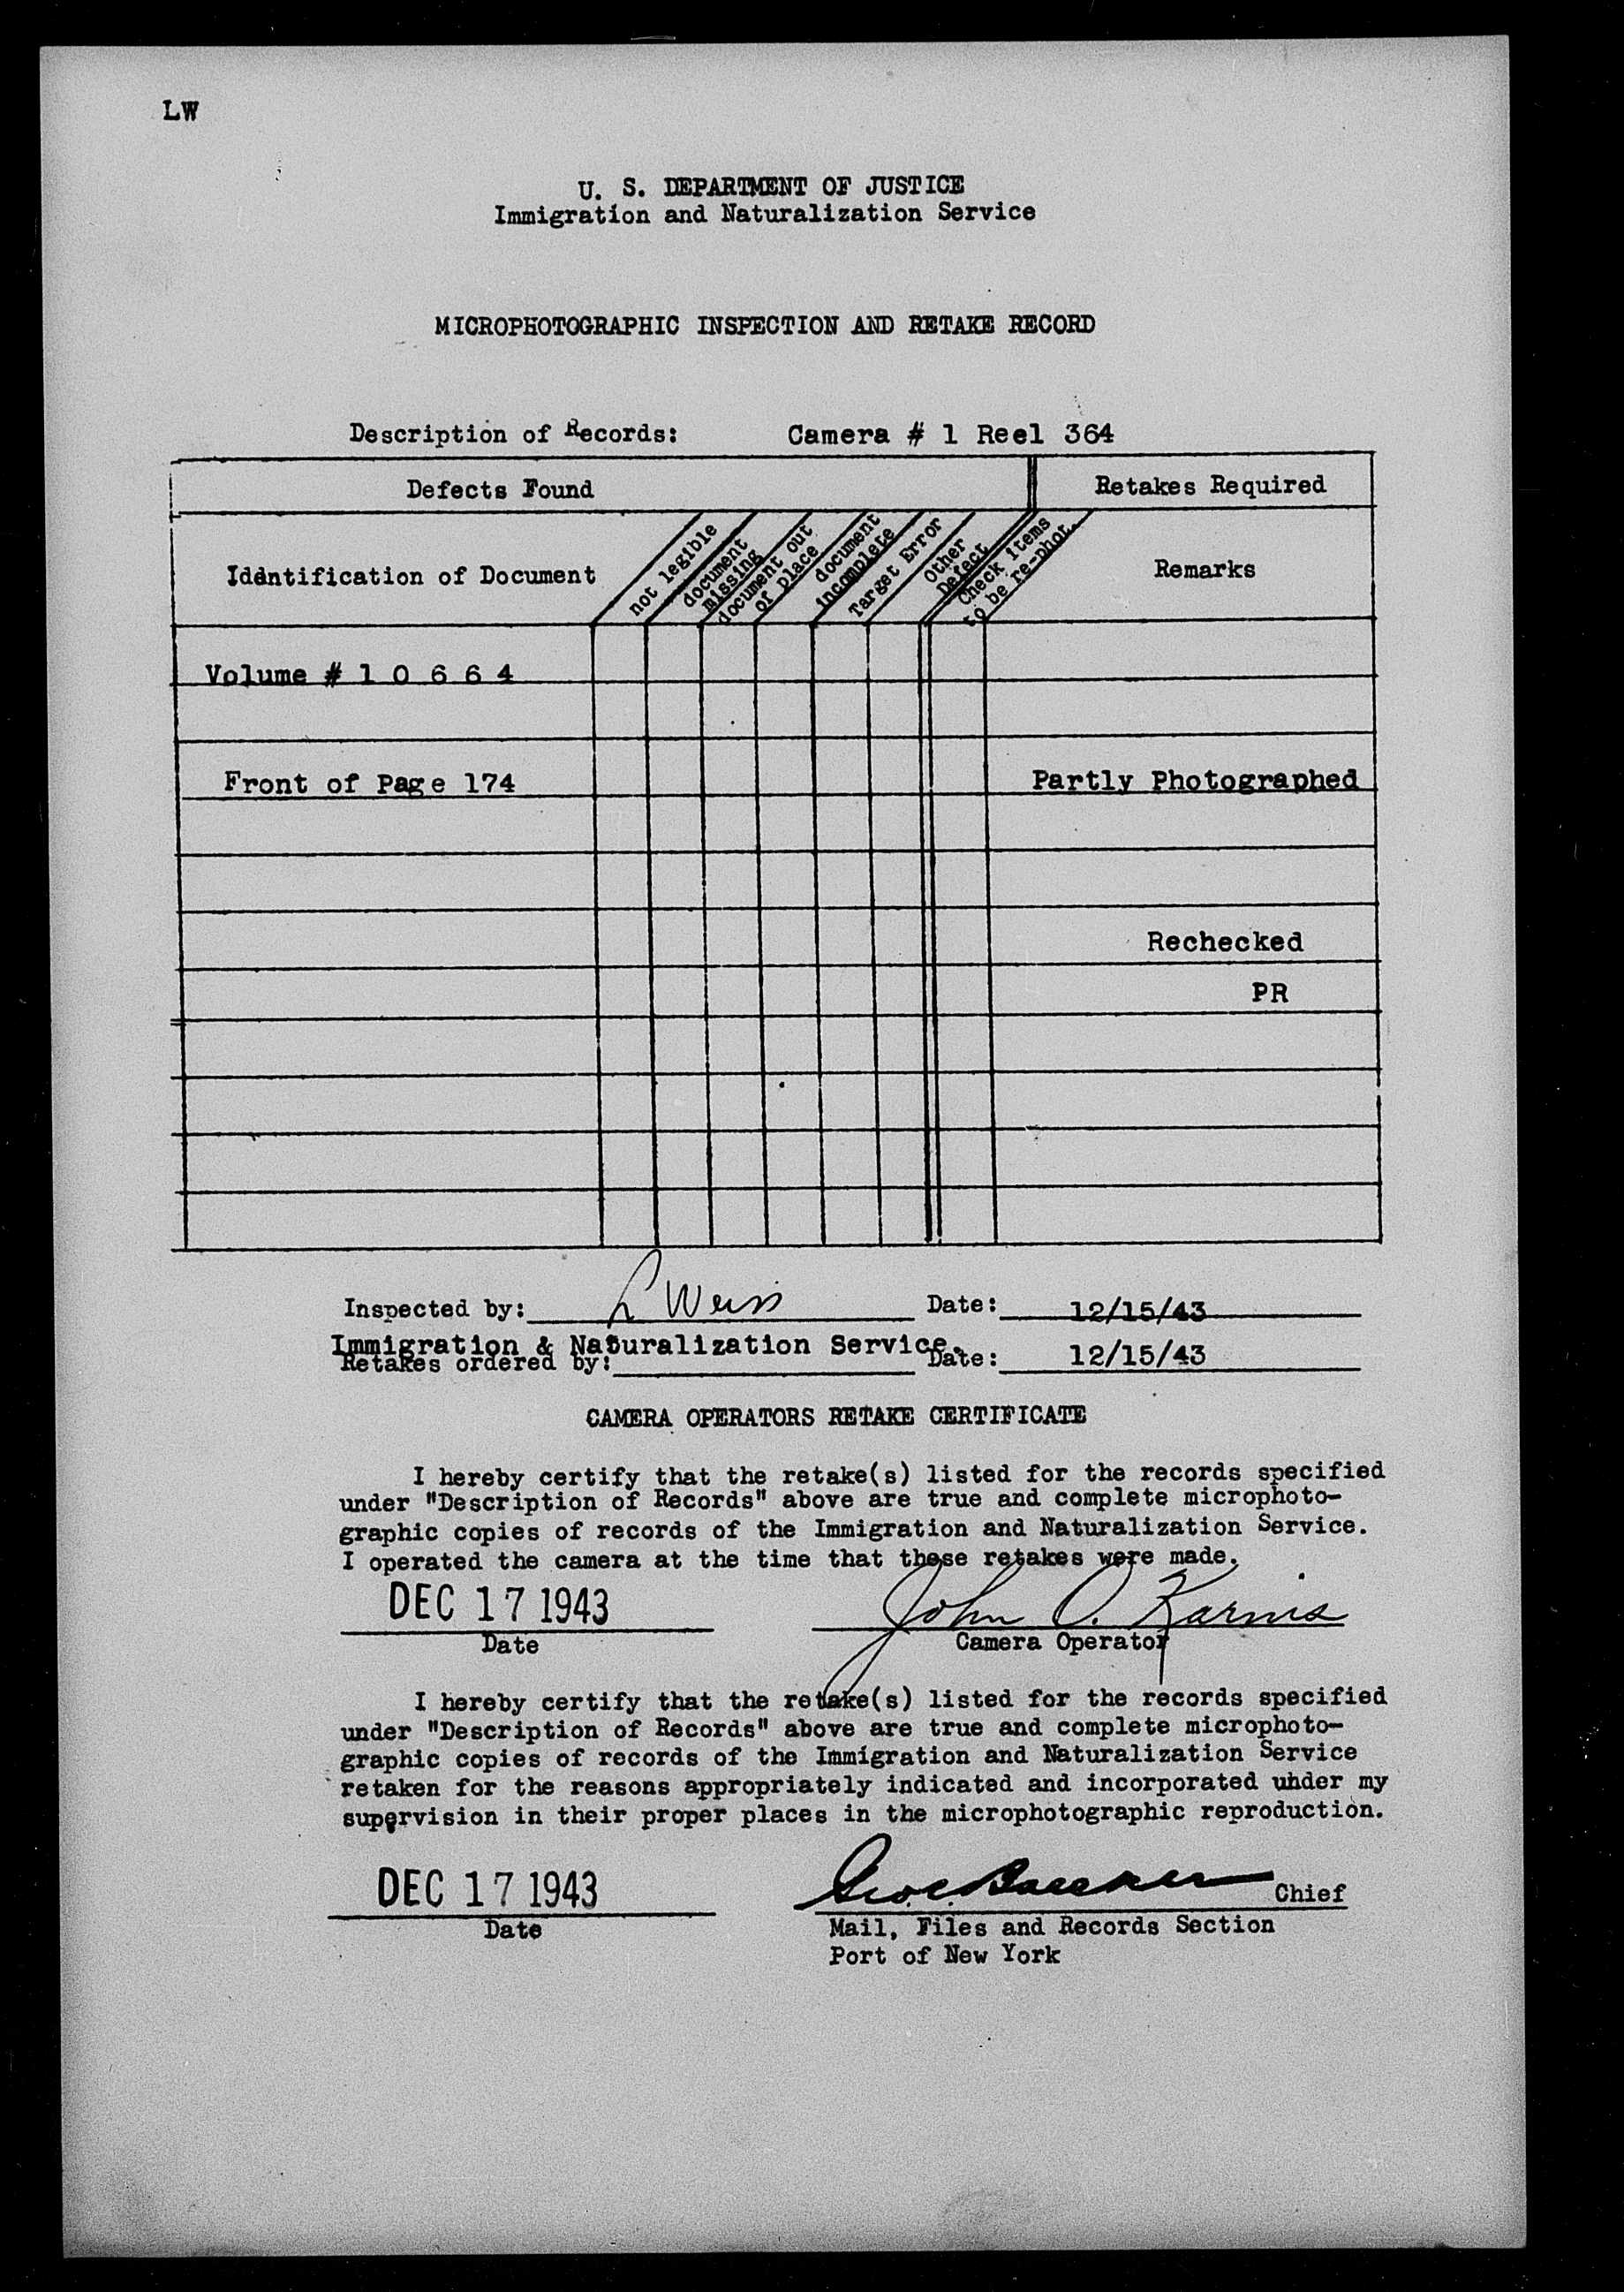 LW
U. S. DEPARTMENT OF JUSTICE
Immigration and Naturalization Service
MICROPHOTOGRAPHIC INSPECTION AND RETAKE RECORD
Description of Records: Camera # 1 Reel 364
Defects Found
Retakes Required
Idåntification of Document
not legible
document missing
document out of place
document incomplete
Target Error
Other Defect
Check items to be re-phot.
Remarks
Volume # 1 0 6 6 4
Front of Page 174
Partly Photographed
Rechecked
PR
Inspected by: L Weiss Date: 12/15/43
Immigration & Naturalization Service.
Retakes ordered by: Date: 12/15/43
CAMERA OPERATORS RETAKE CERTIFICATE
I hereby certify that the retake(s) listed for the records specified
under "Description of Records" above are true and complete microphoto-
graphic copies of records of the Immigration and Naturalization Service.
I operated the camera at the time that these retakes were made.
DEC 17 1943 John O. Karnis
Date Camera Operator
I hereby certify that the retake(s) listed for the records specified
under "Description of Records" above are true and complete microphoto-
graphic copies of records of the Immigration and Naturalization Service
retaken for the reasons appropriately indicated and incorporated under my
supervision in their proper places in the microphotographic reproduction.
DEC 17 1943 Chief
Date
Mail, Files and Records Section
Port of New York